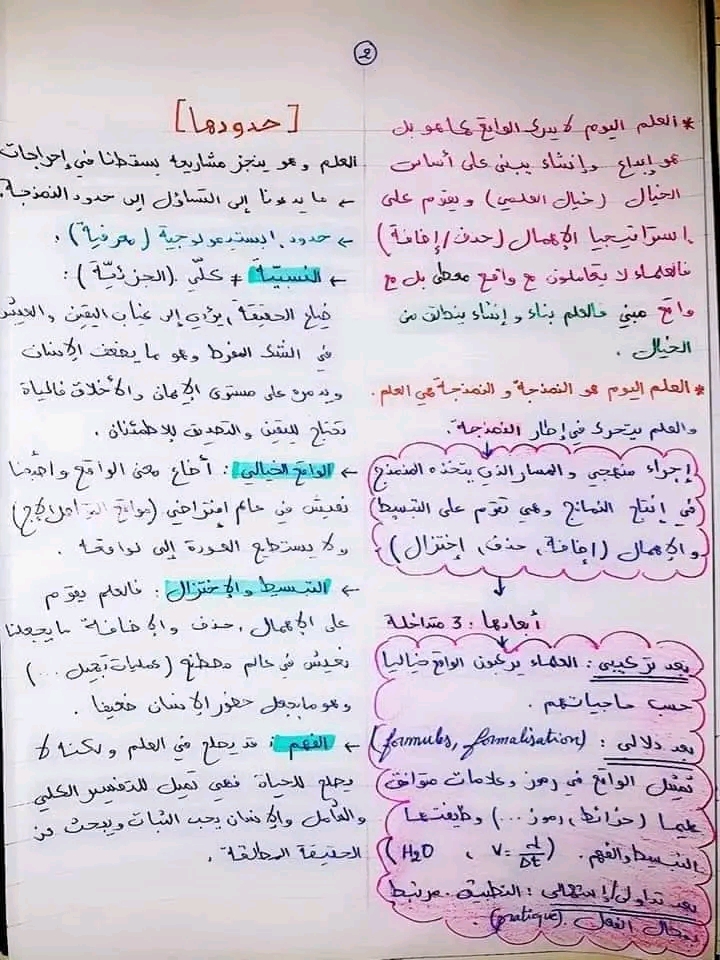 2
* العلم اليوم لا يدرك الواقع كما هو بل
هو إبداع وإنشاء يبنى على أساس
الخيال (خيال العلمي) ويقوم على
استراتيجيا الإهمال (حذف/إضافة)
فالعلماء لا يتعاملون مع واقع معطى بل مع
واقع مبني فالعلم بناء وإنشاء ينطلق من
الخيال.
* العلم اليوم هو النمذجة والنمذجة هي العلم.
والعلم يتحرك في إطار النمذجة.
إجراء منهجي والمسار الذي يتخذه المنمذج
في إنتاج النماذج وهي تقوم على التبسيط
والإهمال (إضافة، حذف، إختزال)
أبعادها: 3 متداخلة
بعد تركيبي: العلماء يركبون الواقع خياليا
حسب حاجياتهم.
بعد دلالي: (formules, formalisation)
تمثيل الواقع في رموز وعلامات متوافق
عليها (خرائط، رموز ...) وظيفتها
التبسيط والفهم. (H₂O ، V = d/Δt)
بعد تداولي/إستعمالي: التطبيق. مرتبط
بمجال الفعل. (pratique)
[حدودها]
العلم وهو ينجز مشاريعه يسقطنا في إحراجات
← ما يدعونا إلى التساؤل إلى حدود النمذجة.
← حدود إبستيمولوجية (معرفية).
← النسبية ≠ كلّي (الجزئيّة):
ضياع الحقيقة، يؤدي إلى غياب اليقين والعيش
في الشك المفرط وهو ما يضعف الإنسان
ويدمره على مستوى الإيمان والأخلاق فالحياة
تحتاج لليقين والتصديق للاطمئنان.
← الواقع الخيالي: أضاع معنى الواقع وأصبحنا
نعيش في عالم إفتراضي (مواقع التواصل الإج)
ولا يستطيع العودة إلى لواقعه.
← التبسيط والإختزال: فالعلم يقوم
على الإهمال، حذف والإضافة ما يجعلنا
نعيش في عالم مصطنع (عمليات تجميل ...)
وهو ما يجعل حضور الإنسان ضعيفا.
← الفهم: قد يصلح في العلم ولكنه لا
يصلح للحياة فهي تميل للتفسير الكلي
والشامل والإنسان يحب الثبات ويبحث عن
الحقيقة المطلقة.